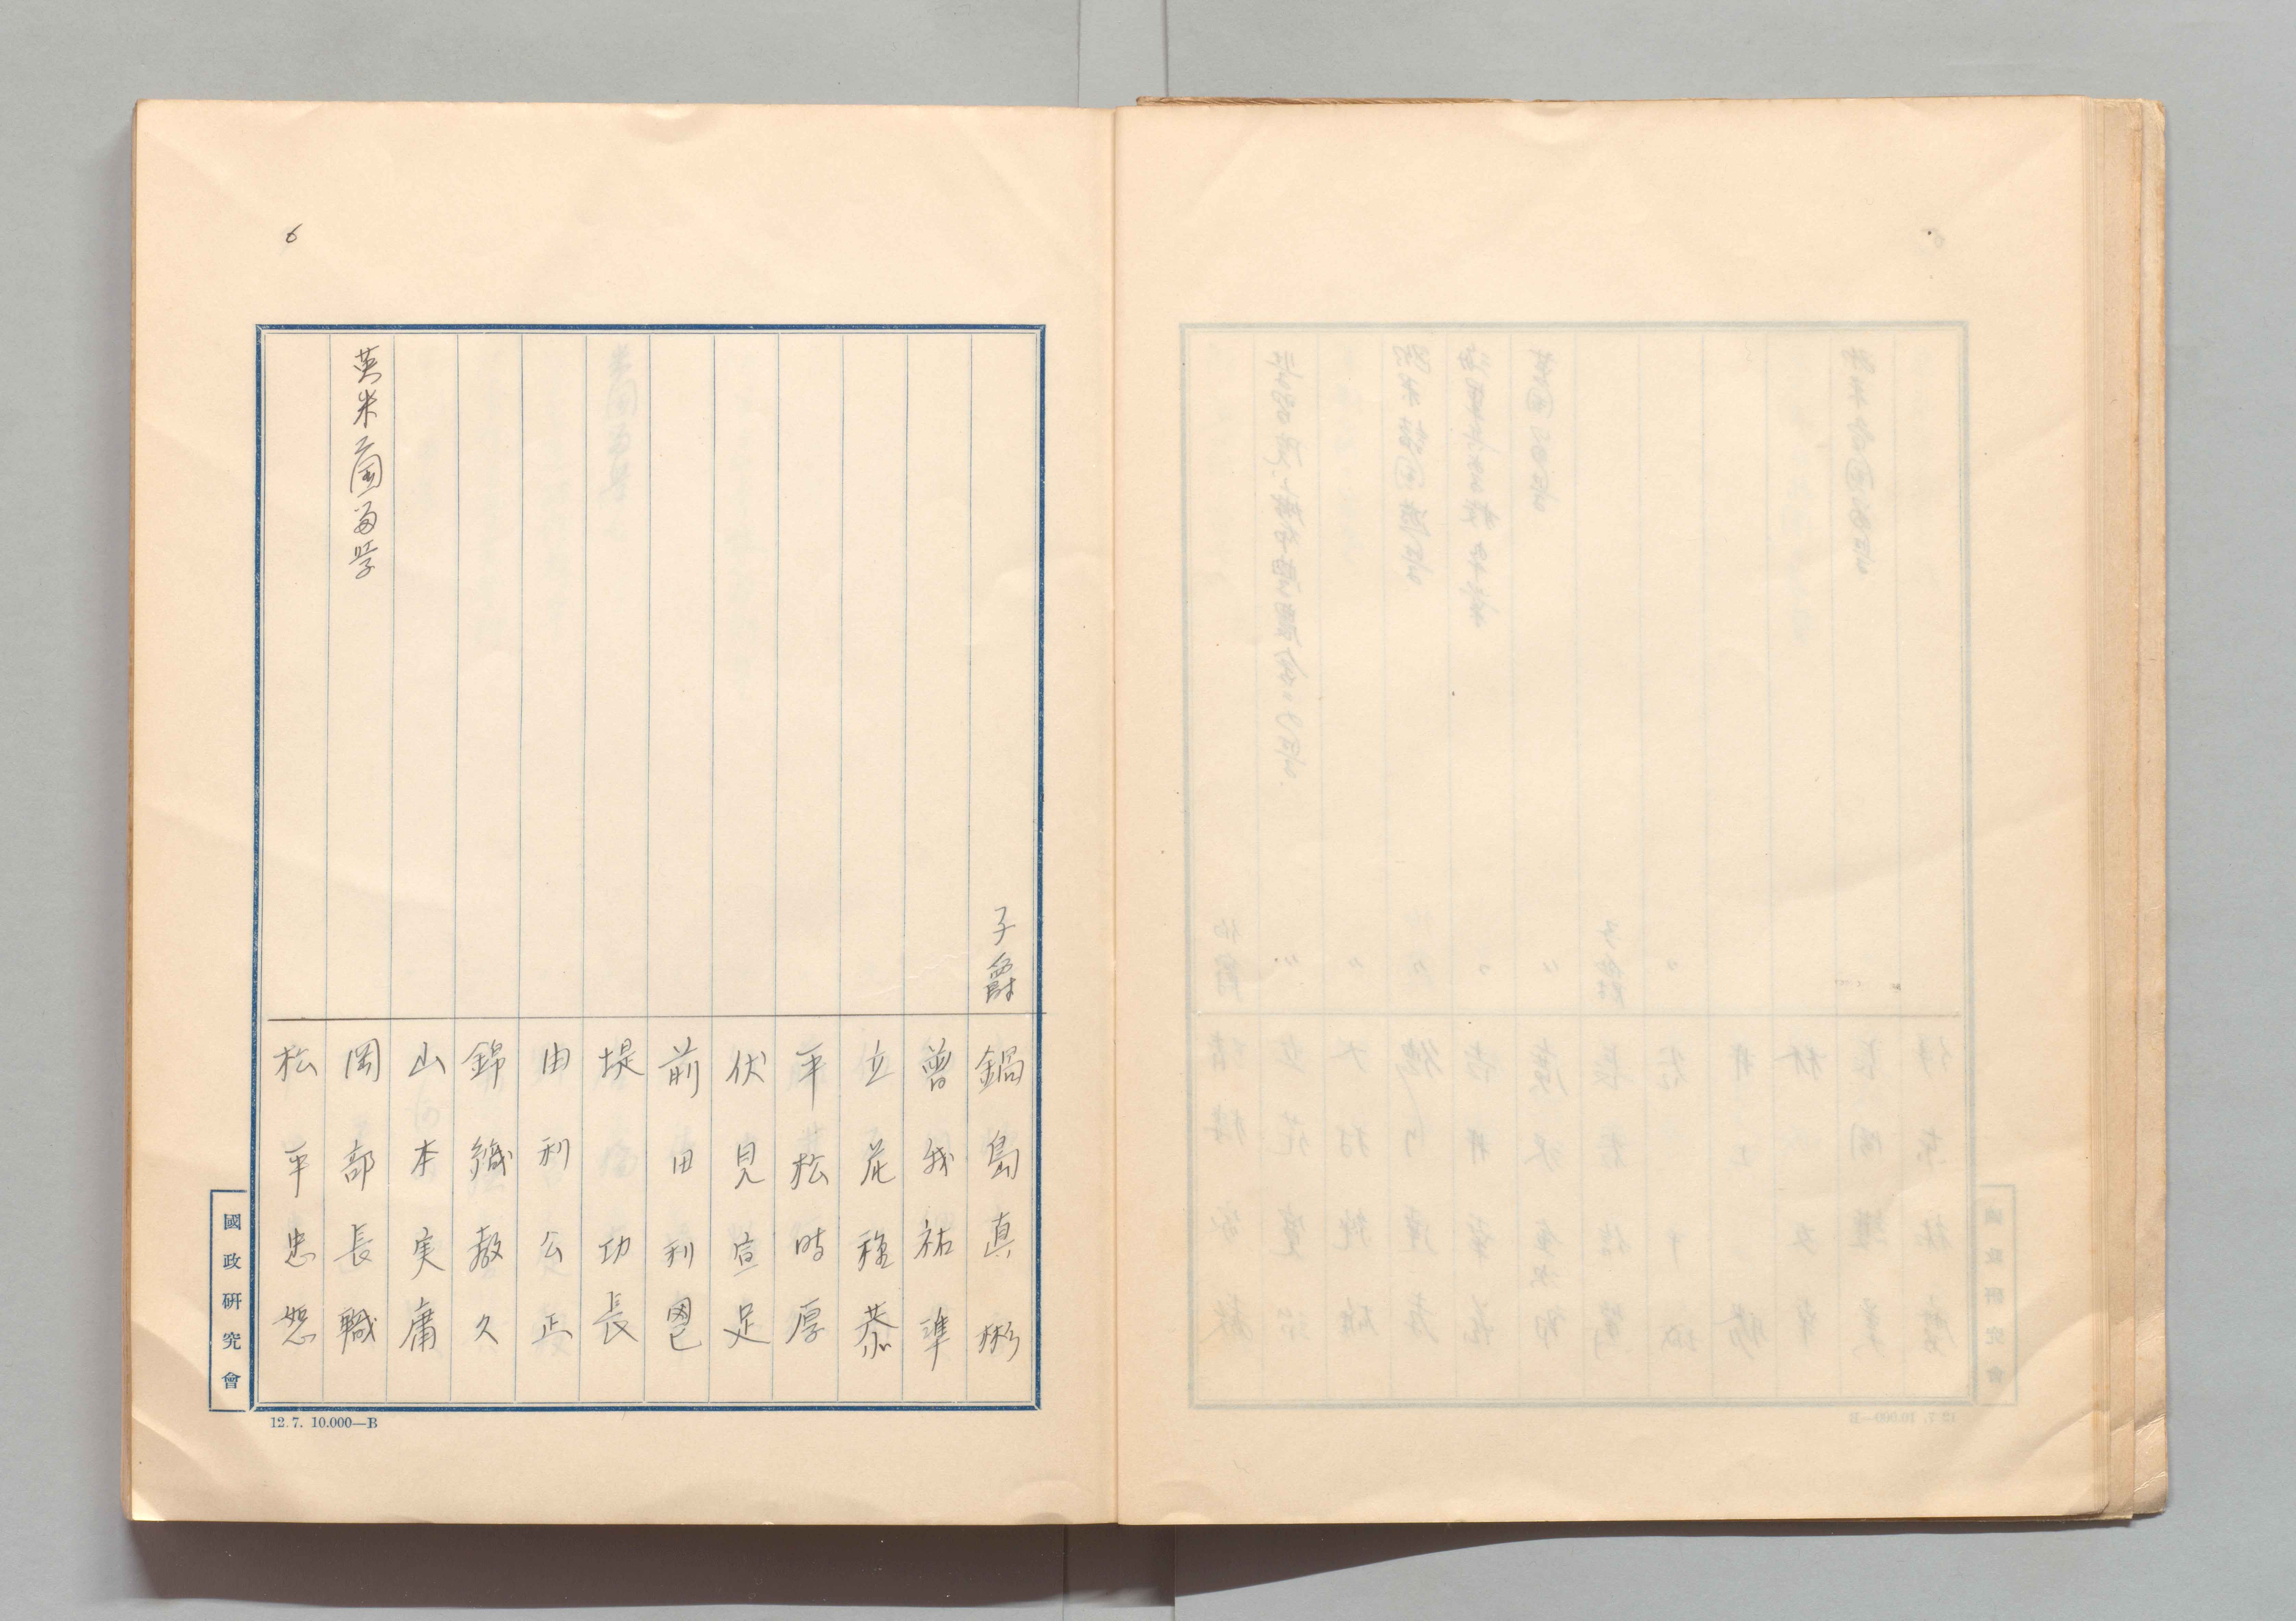 6
鍋島直彬
子爵
曽我祐準
立花種恭
平松時厚
伏見宣足
前田利鬯
堤功長
由利公正
錦織教久
山本実庸
岡部長職
英米両国留学
松平忠恕
國政研究會
12.7. 10.000—B